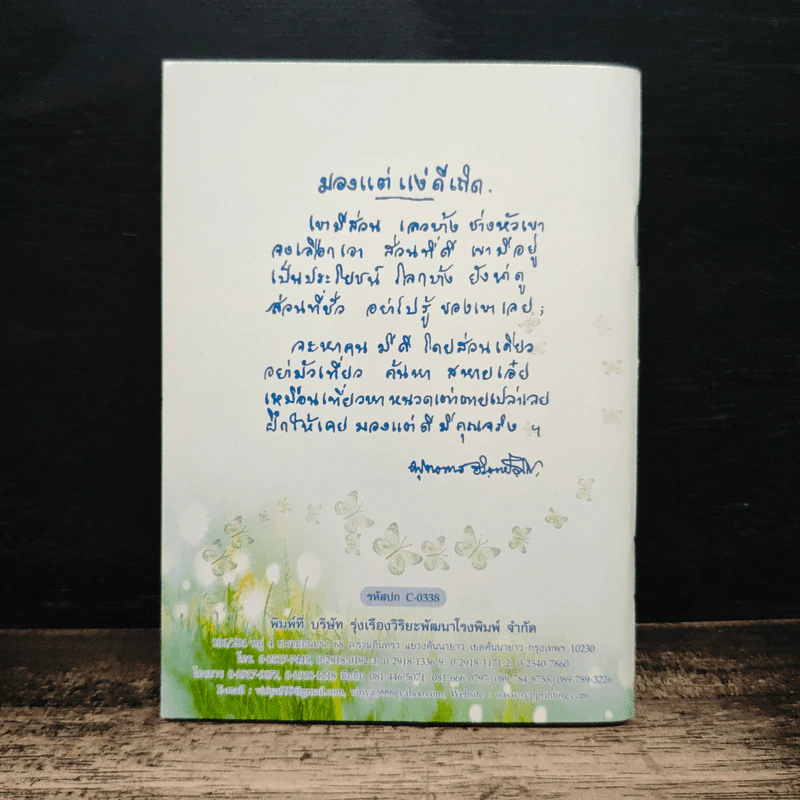 มองแต่แง่ดีเถิด.
เขามีส่วน เลวบ้าง ช่างหัวเขา
จงเลือกเอา ส่วนที่ดี เขามีอยู่
เป็นประโยชน์ โลกบ้าง ยังน่าดู
ส่วนที่ชั่ว อย่าไปรู้ ของเขาเลย ;
จะหาคน มีดี โดยส่วนเดียว
อย่ามัวเที่ยว ค้นหา สหายเอ๋ย
เหมือนเที่ยวหาหนวดเต่าตายเปล่าเลย
ฝึกให้เคย มองแต่ดีมีคุณจริง ฯ
พุทธทาส อินฺทปญฺโญ.
รหัสปก C-0338
พิมพ์ที่ บริษัท รุ่งเรืองวิริยะพัฒนาโรงพิมพ์ จำกัด
หมู่ 4 68 ถ.รามอินทรา แขวงคันนายาว เขตคันนายาว กรุงเทพฯ 10230
โทร. 0-2918-0192-3, 0-2918-1336-9, 0-2918-1171-2, 0-2540-7860
โทรสาร มือถือ 081-446-5071, 081-666-0797, 089-784-8758, 089-789-3226
E-mail :